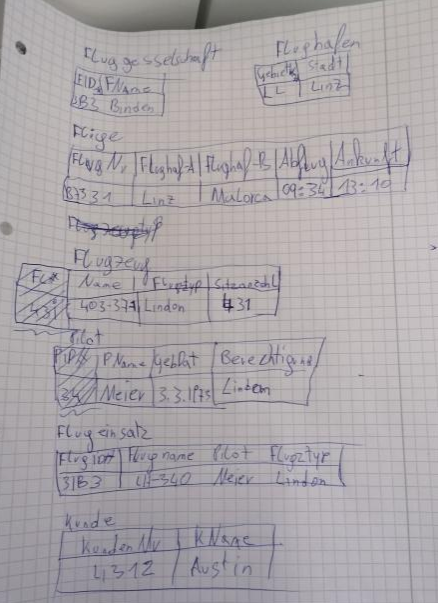 Fluggesselschaft
FID FName
3B3 Binden
Flughafen
Stadt
LL Linz
Flüge
Flug Nr Flughaf-A Flughaf-B Abflug Ankunft
B7331 Linz Mallorca 09:34 13:10
Flugzeugtyp
Flugzeug
Name Flugtyp Sitzanzahl
403-371 Lindon 431
Pilot
PName GebDat Berechtigung
34 Meier 3.3.1975 Lindon
Flugeinsatz
Flug Flugname Pilot Flugztyp
31B3 LH-340 Meier Lindon
Kunde
KundenNr KName
4312 Austin